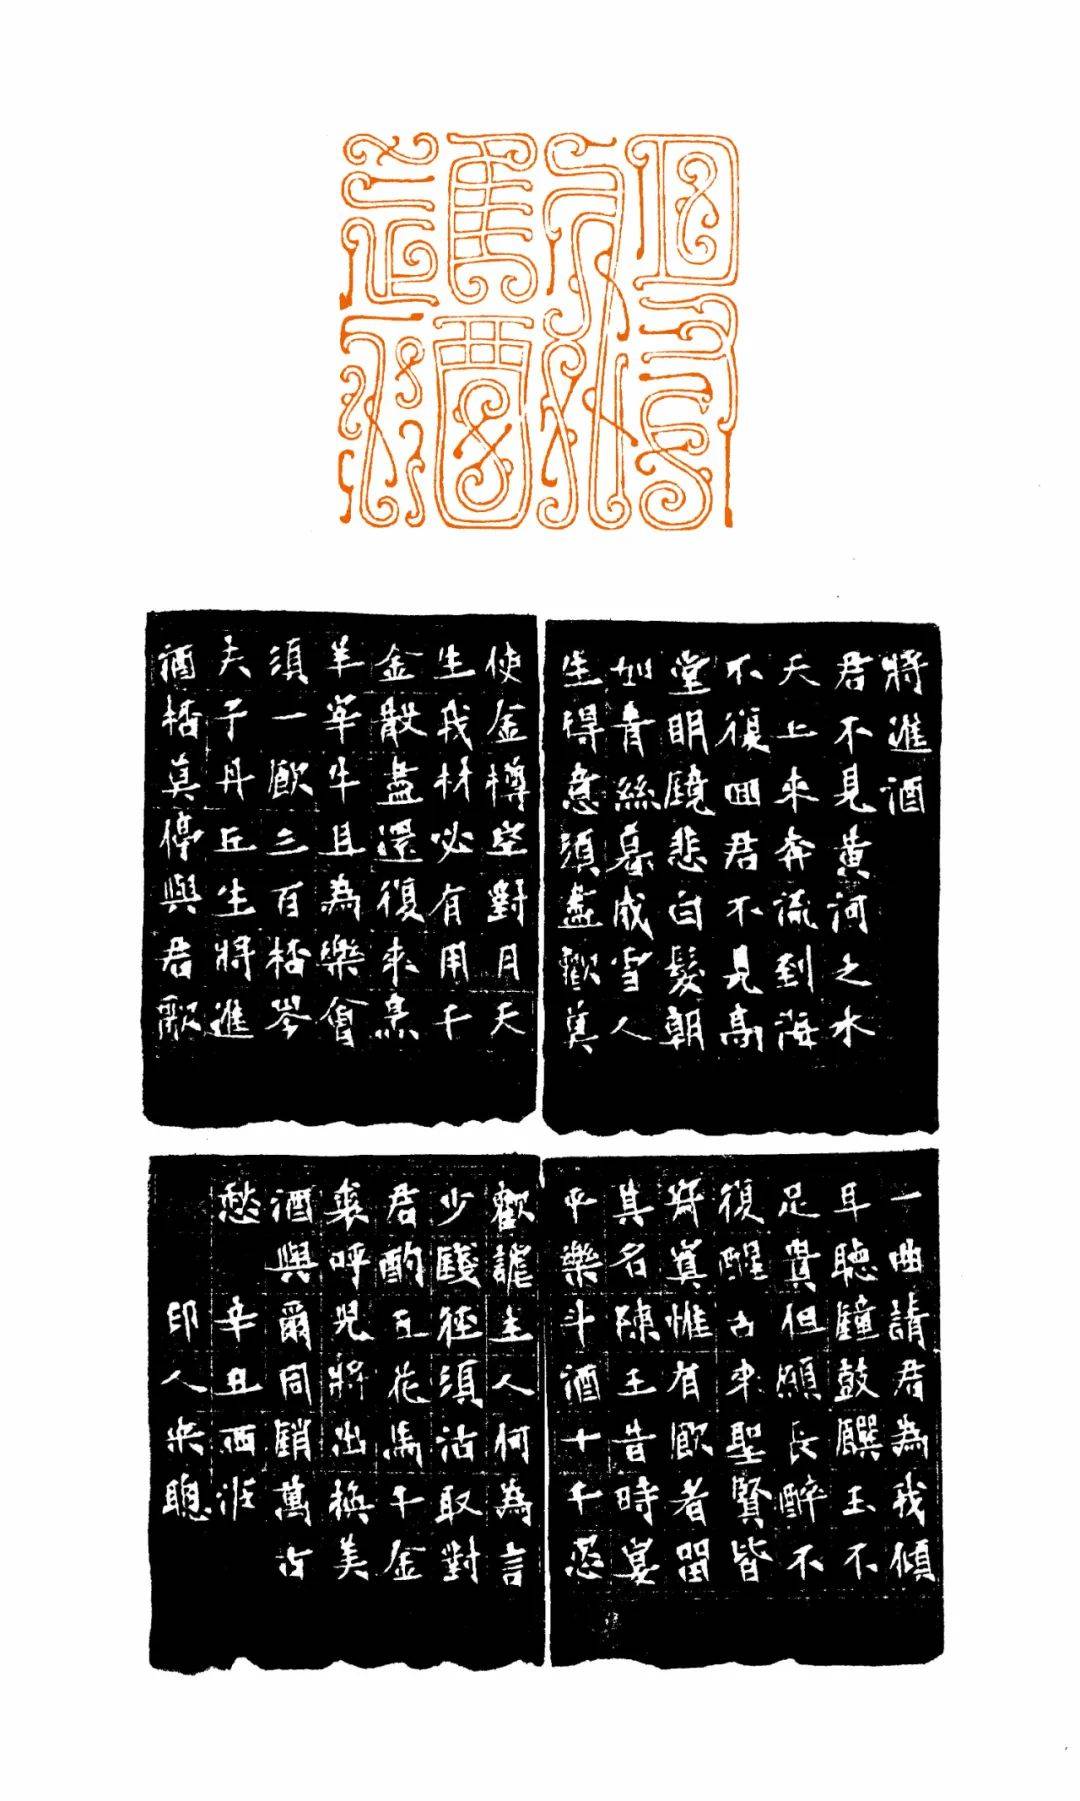 將進酒
君不見黃河之水
天上來奔流到海
不復回君不見高
堂明鏡悲白髮朝
如青絲暮成雪人
生得意須盡歡莫
使金樽空對月天
生我材必有用千
金散盡還復來烹
羊宰牛且為樂會
須一飲三百桮岑
夫子丹丘生將進
酒桮莫停與君歌
一曲請君為我傾
耳聽鐘鼓饌玉不
足貴但願長醉不
復醒古來聖賢皆
寂寞惟有飲者留
其名陳王昔時宴
平樂斗酒十千恣
歡謔主人何為言
少錢徑須沽取對
君酌五花馬千金
裘呼兒將出換美
酒與爾同銷萬古
愁 辛丑西
印人聰